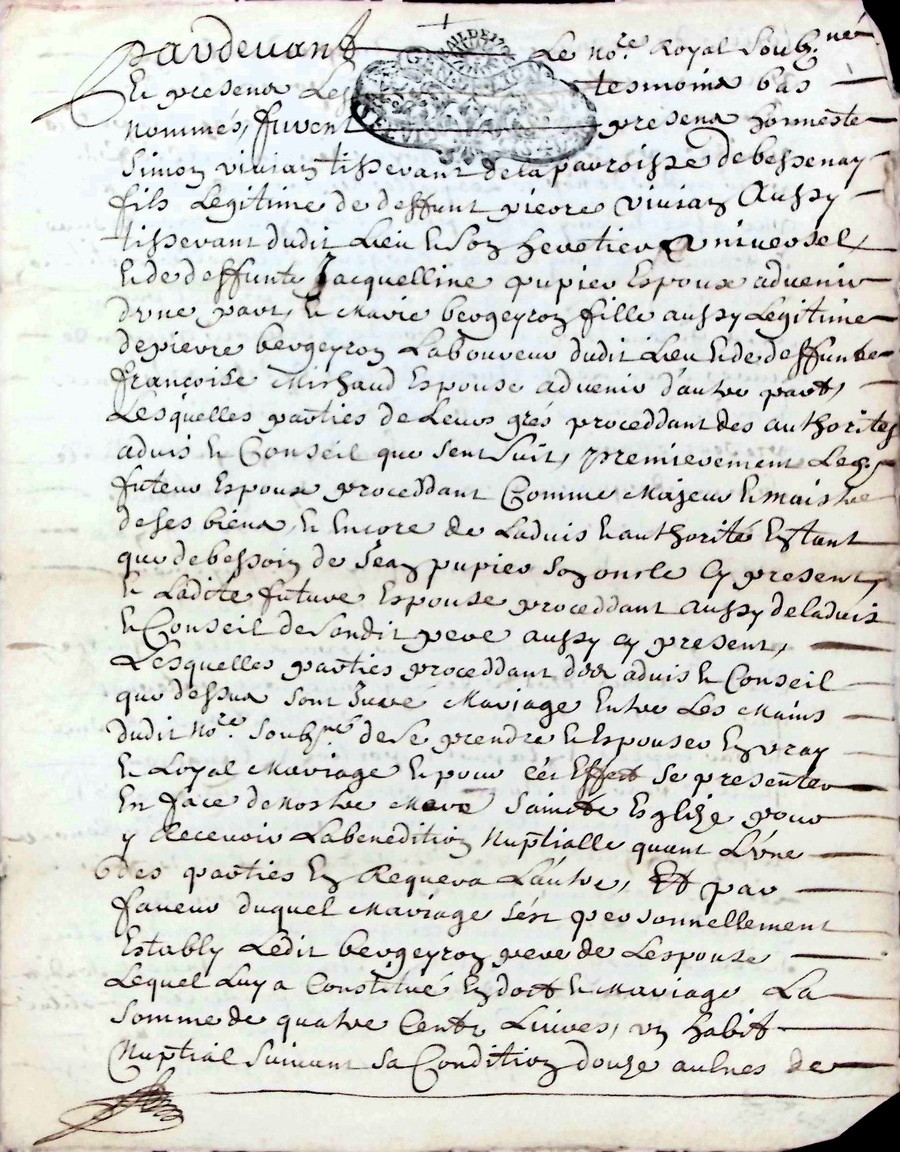 Pardevant Le no.re Royal soub.né
Et presens Les tesmoins bas
nommés, fuvent presens honneste
Simon vivian tissevant de la parroisse de bessenay
fils Legitime de deffunt pierre vivian Aussy
tissevant dudit Lieu & son heretier universel,
& de deffunte Jacquelline pupier Espoux advenir
dvne part, & Marie bergeyron fille aussy Legitime
de pierre bergeyron Laboureur dudit Lieu & de deffunte
françoise Michaud Espouse advenir d'autre part,
Lesquelles parties de Leurs grés proceddant des authorites
advis & Conseil que sent suit, premierement Led.
futeur Espoux proceddant Comme Majeur & maistre
de ses biens, & Encore de Ladvis & authorité Entant
que de bessoin de Jean pupier son oncle Cy present,
& Ladite future Espouse proceddant aussy de ladvis
& Conseil de sondit pere aussy Cy present,
Lesquelles parties proceddant advis & Conseil
que dessus sont Juré Mariage Entre Les Mains
dudit no.re soub.né de se prendre & Espouser En vray
& Loyal Mariage & pour cét Effect se presenter
En face de Nostre Mere saincte Esglize pour
y Recevoir La benedition Nuptialle quant L'vne
des parties En Requera L'autre, Et par
faveur duquel Mariage s'ést personnellement
Estably Ledit bergeyron pere de Lespouse
Lequel Luy a Constitué En dott & Mariage La
somme de quatre Cents Livres, vn habit
Nuptial suivant sa Condition douze aulnes de